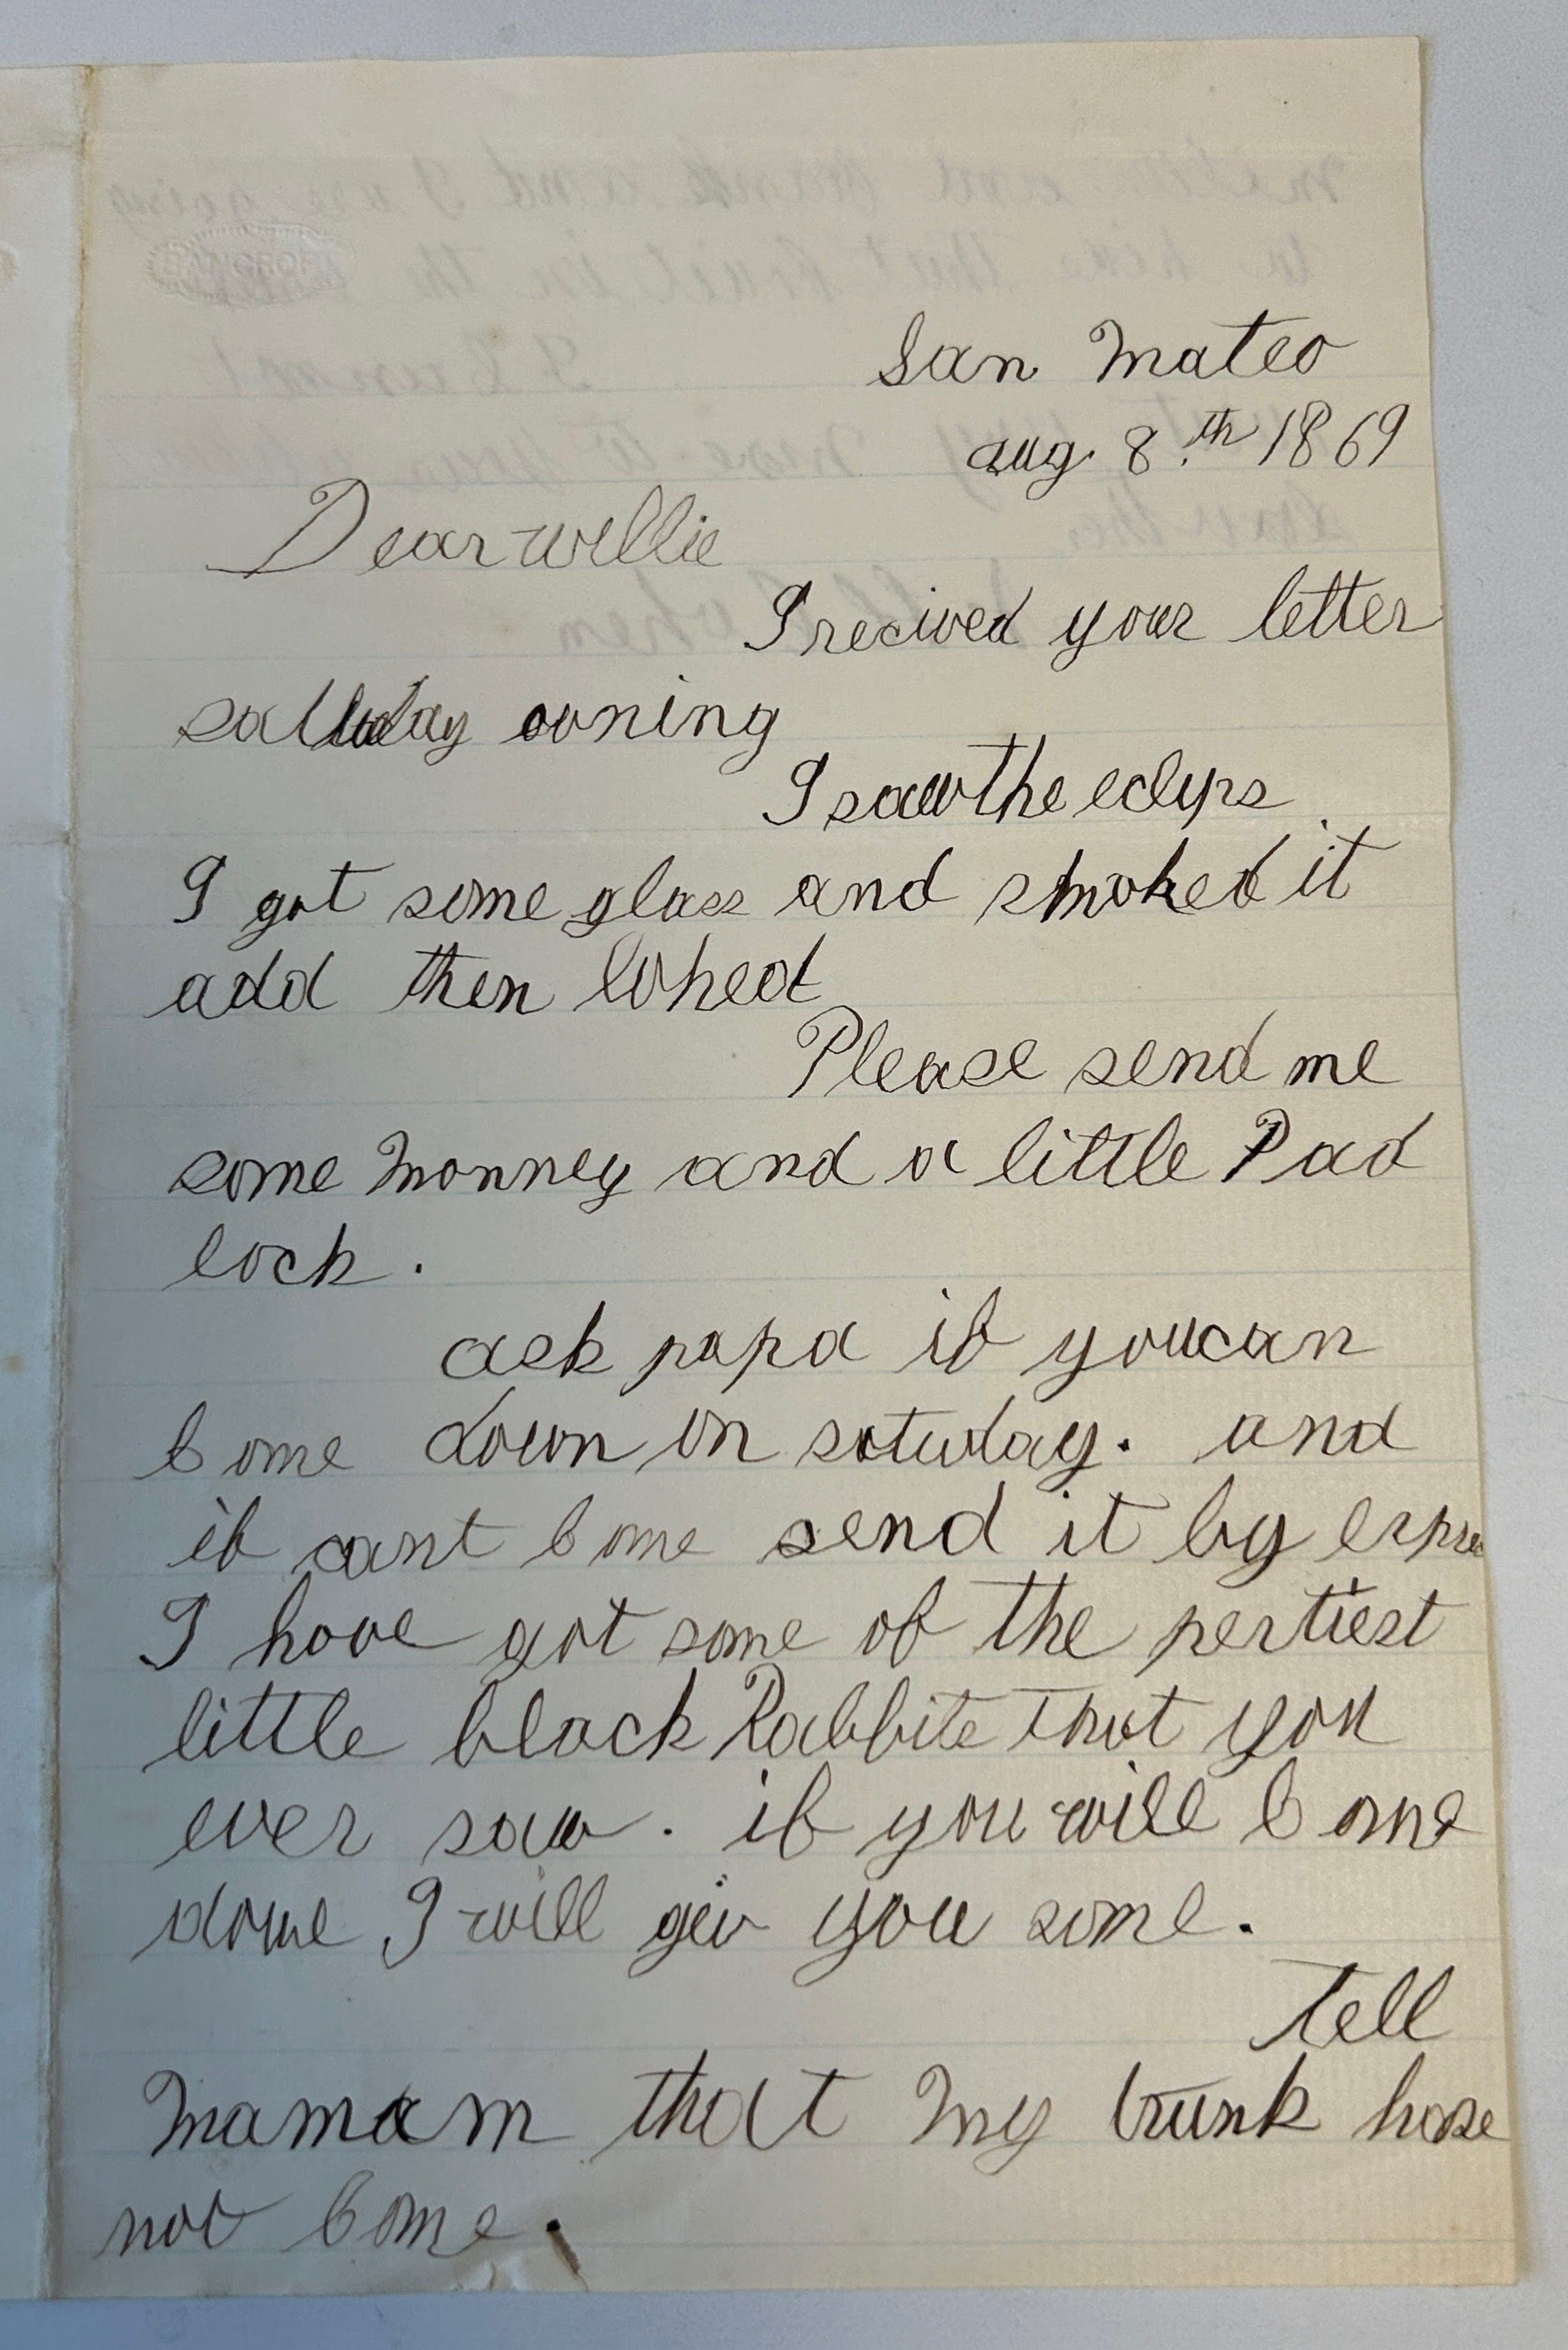 BANCROF
San Mateo
aug. 8.th 1869
Dear willie
I recived your letter
satturday evning
I saw the eclyps
I got some glass and smoked it
add then loked
Please send me
some monney and a little Pad
lock.
ask papa if you can
come down on saturday. and
if cant come send it by expres
I have got some of the pertiest
little black Rabbits that you
ever saw. if you will come
down I will giv you some.
Tell
mamam that my trunk hase
not come.